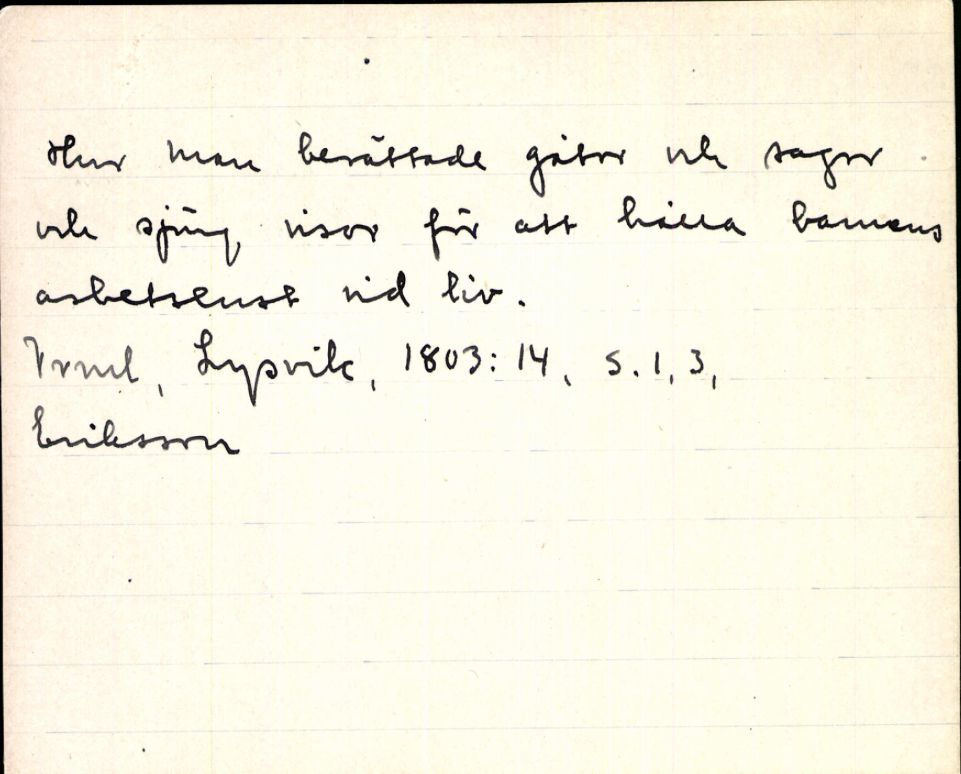 Hur man berättade gåtor och sagor
och sjöng visor för att hålla barnens
arbetslust vid liv.
Vrml, Lysvik, 1803:14, s. 1, 3,
Eriksson